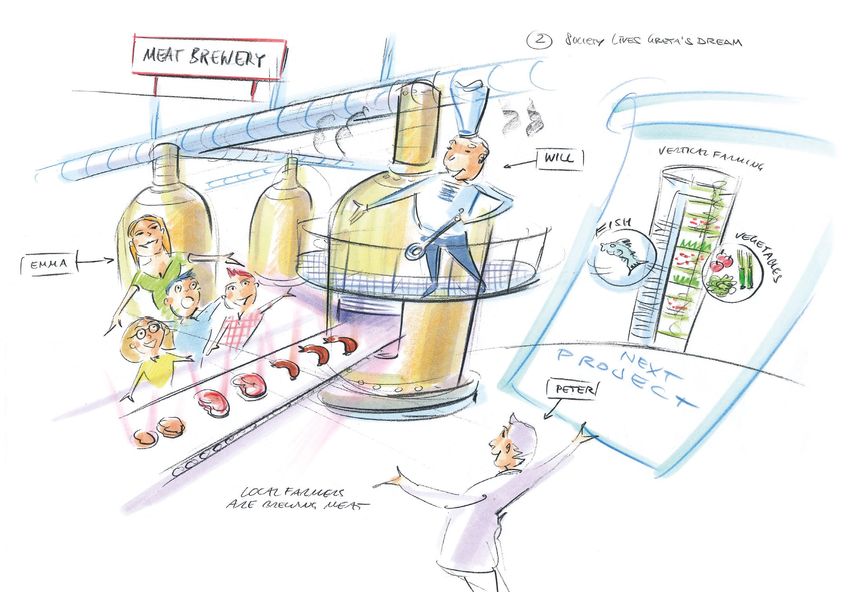 MEAT BREWERY
2 SOCIETY LIVES GRETA'S DREAM
WILL
VERTICAL FARMING
FISH
VEGETABLES
EMMA
NEXT
PROJECT
PETER
LOCAL FARMERS
ARE BREWING MEAT